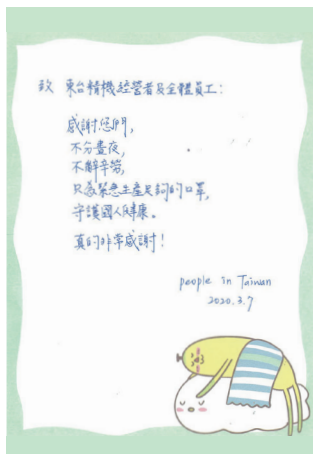 致 東台精機經營者及全體員工：
感謝您們，
不分晝夜，
不辭辛勞，
只為緊急生產足夠的口罩，
守護國人健康。
真的非常感謝！
people in Taiwan
2020.3.7